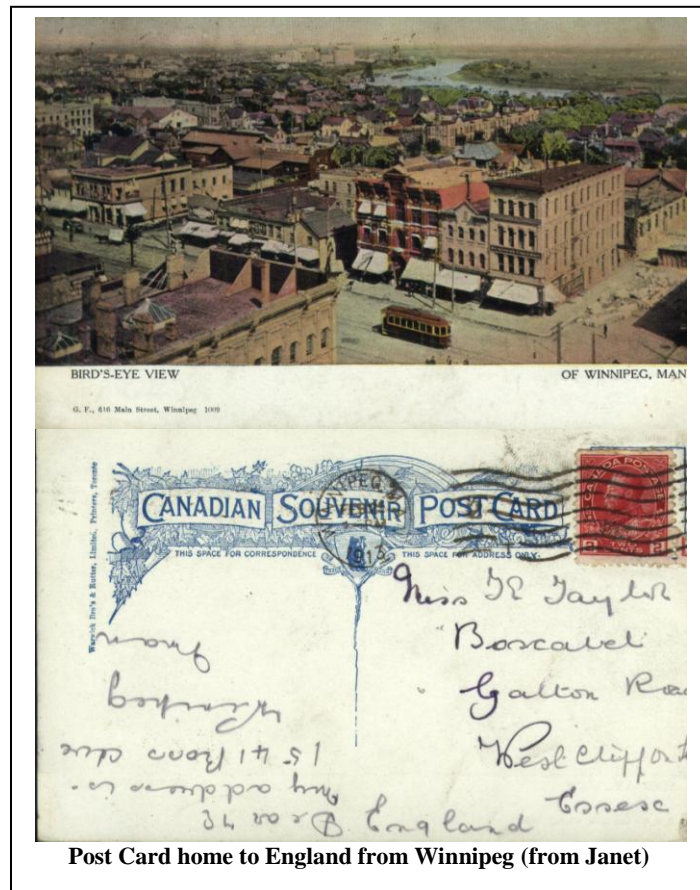 BIRD'S-EYE VIEW OF WINNIPEG, MAN
G. F., 616 Main Street, Winnipeg 1009
Warwick Bro's & Rutter, Limited, Printers, Toronto
CANADIAN SOUVENIR POST CARD
THIS SPACE FOR CORRESPONDENCE
THIS SPACE FOR ADDRESS ONLY.
WINNIPEG
1913
CANADA POSTAGE
2 2
Miss Taylor
Boscabel
Galton Roa
West Cliff on
Essex
England
Dear
my address is
1541 Ross Ave
Winipeg
Man
Post Card home to England from Winnipeg (from Janet)